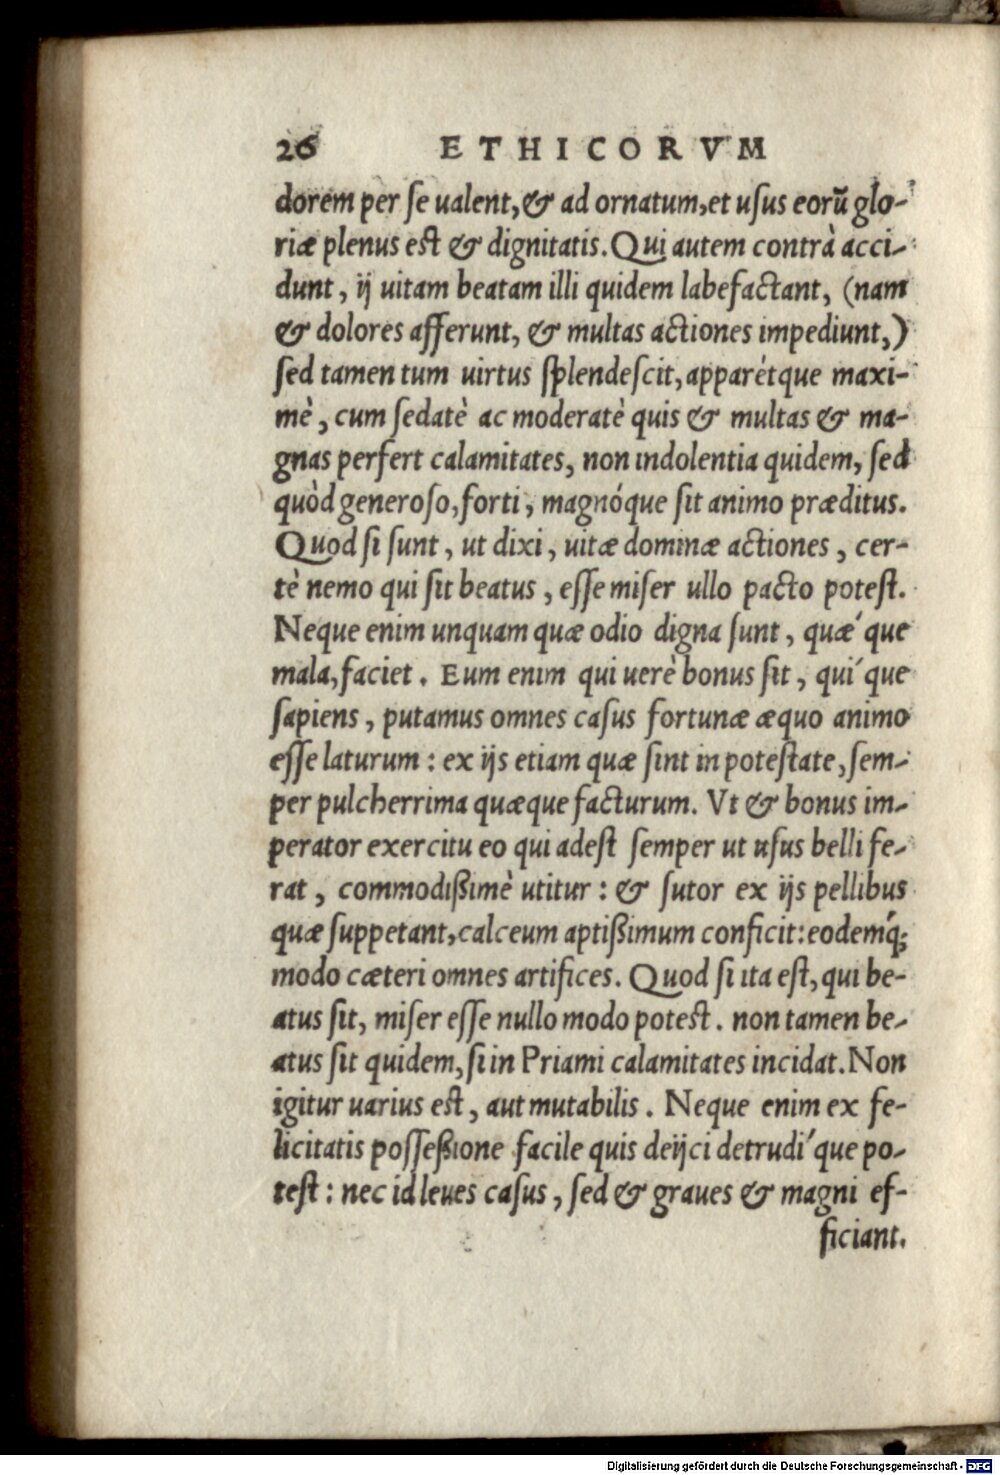 26 ETHICORVM
dorem per se ualent, & ad ornatum, et usus eorũ glo-
riæ plenus est & dignitatis. Qui autem contrà acci-
dunt, ij uitam beatam illi quidem labefactant, (nam
& dolores afferunt, & multas actiones impediunt,)
sed tamen tum uirtus splendescit, apparétque maxi-
mè, cum sedatè ac moderatè quis & multas & ma-
gnas perfert calamitates, non indolentia quidem, sed
quòd generoso, forti, magnóque sit animo præditus.
Quod si sunt, ut dixi, uitæ dominæ actiones, cer-
tè nemo qui sit beatus, esse miser ullo pacto potest.
Neque enim unquam quæ odio digna sunt, quæ´que
mala, faciet. Eum enim qui uerè bonus sit, qui´que
sapiens, putamus omnes casus fortunæ æquo animo
esse laturum: ex ijs etiam quæ sint in potestate, sem-
per pulcherrima quæque facturum. Vt & bonus im-
perator exercitu eo qui adest semper ut usus belli fe-
rat, commodißimè utitur: & sutor ex ijs pellibus
quæ suppetant, calceum aptißimum conficit: eodemq́;
modo cæteri omnes artifices. Quod si ita est, qui be-
atus sit, miser esse nullo modo potest. non tamen be-
atus sit quidem, si in Priami calamitates incidat. Non
igitur uarius est, aut mutabilis. Neque enim ex fe-
licitatis posseßione facile quis deijci detrudi´que po-
test: nec id leues casus, sed & graues & magni ef-
ficiant.
Digitalisierung gefördert durch die Deutsche Forschungsgemeinschaft - DFG